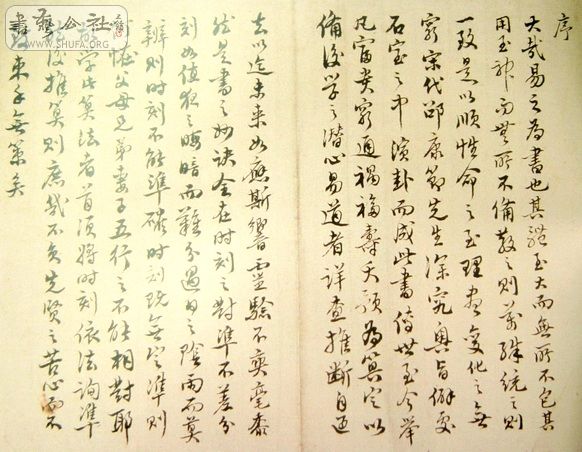 序
大哉易之為書也其體至大而無所不包其
用至神而無所不備散之則萬殊統之則
一致是以順性命之至理盡變化之無
窮宋代邵康節先生深究奧旨僻處
石室之中演卦而成此書傳世至今舉
凡富貴窮通禍福壽夭預為算定以
備後學之潛心易道者詳查推斷自过
去以迄未來如應斯響靈驗不爽毫黍
然是書之妙訣全在時刻之對準不差分
刻如值夜之晦暗而難分過日之陰雨而莫
辨則时刻不能準確时刻既無定準則
父母兄弟妻子五行之不能相對耶
學此算法者首須將时刻依法詢準
後推算則庶幾不負先賢之苦心而不
束手無策矣
書藝公社
WWW.SHUFA.ORG